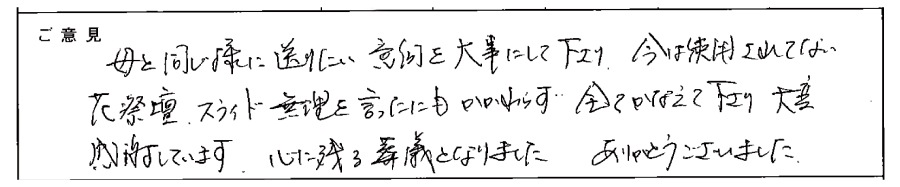 ご意見
母と同じ様に送りたい意向を大事にして下さり、今は使用されてない
花祭壇、スライド無理を言ったにもかかわらず全てかなえて下さり大変
感謝しています。心に残る葬儀となりました ありがとうございました。